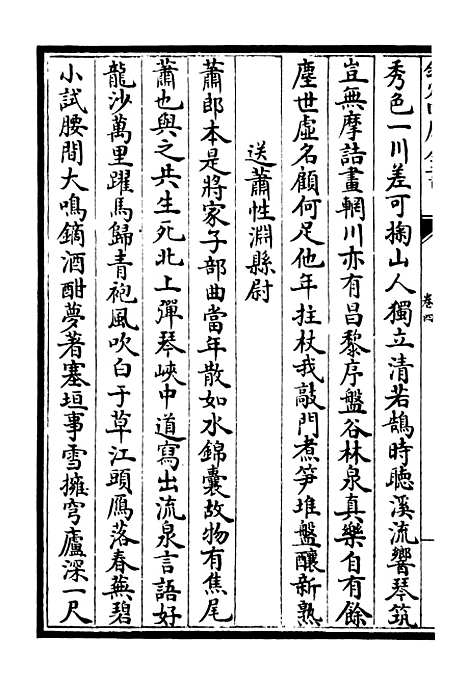 卷四
秀色一川差可掬山人獨立清若鵠時聽溪流響琴筑
豈無摩詰畫輞川亦有昌黎序盤谷林泉真樂自有餘
塵世虛名顧何足他年拄杖我敲門煮笋堆盤釀新熟
送蕭性淵縣尉
蕭郎本是將家子部曲當年散如水錦囊故物有焦尾
蕭也與之共生死北上彈琴峽中道寫出流泉言語好
龍沙萬里躍馬歸青袍風吹白于草江頭鴈落春蕪碧
小試腰間大鳴鏑酒酣夢著塞垣事雪擁穹廬深一尺